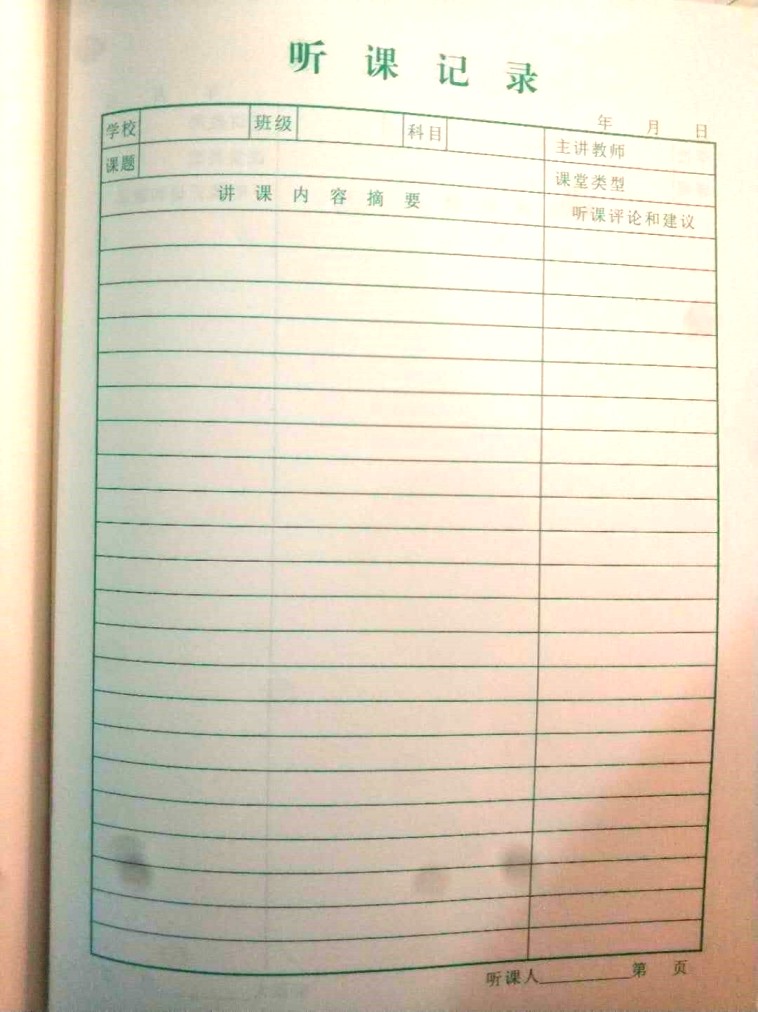 听课记录
年 月 日
学校 班级 科目 主讲教师
课题 课堂类型
讲课内容摘要 听课评论和建议
听课人 第 页